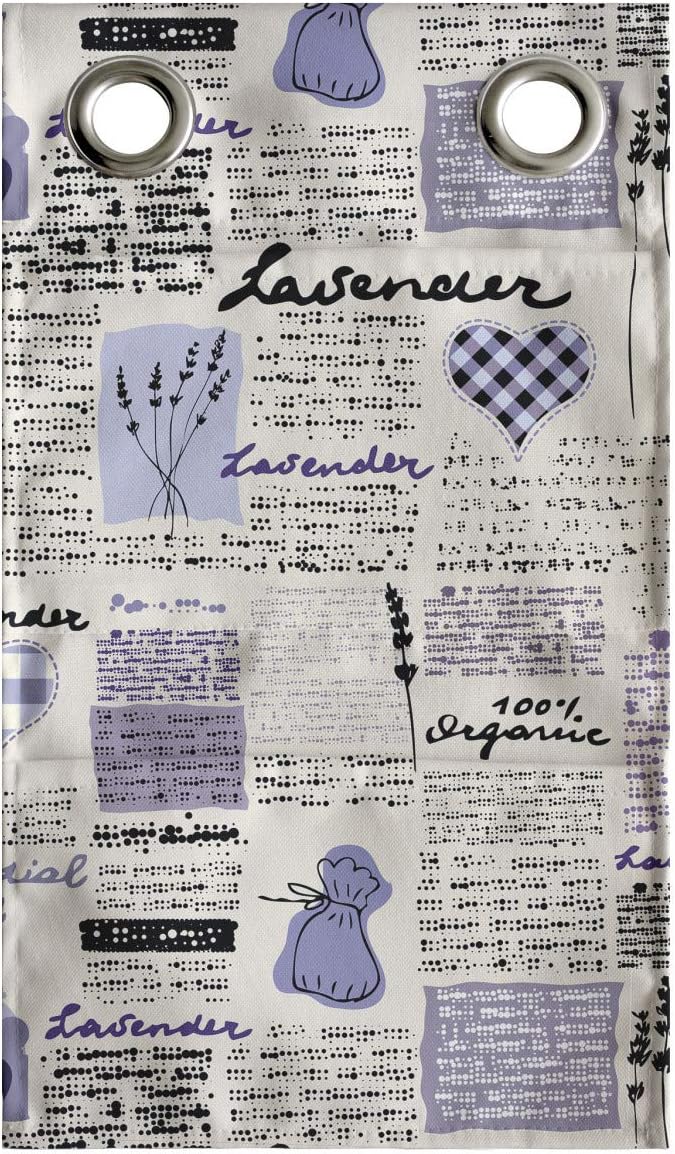 Lavender
Lavender
nder
100%
Organic
Lavender